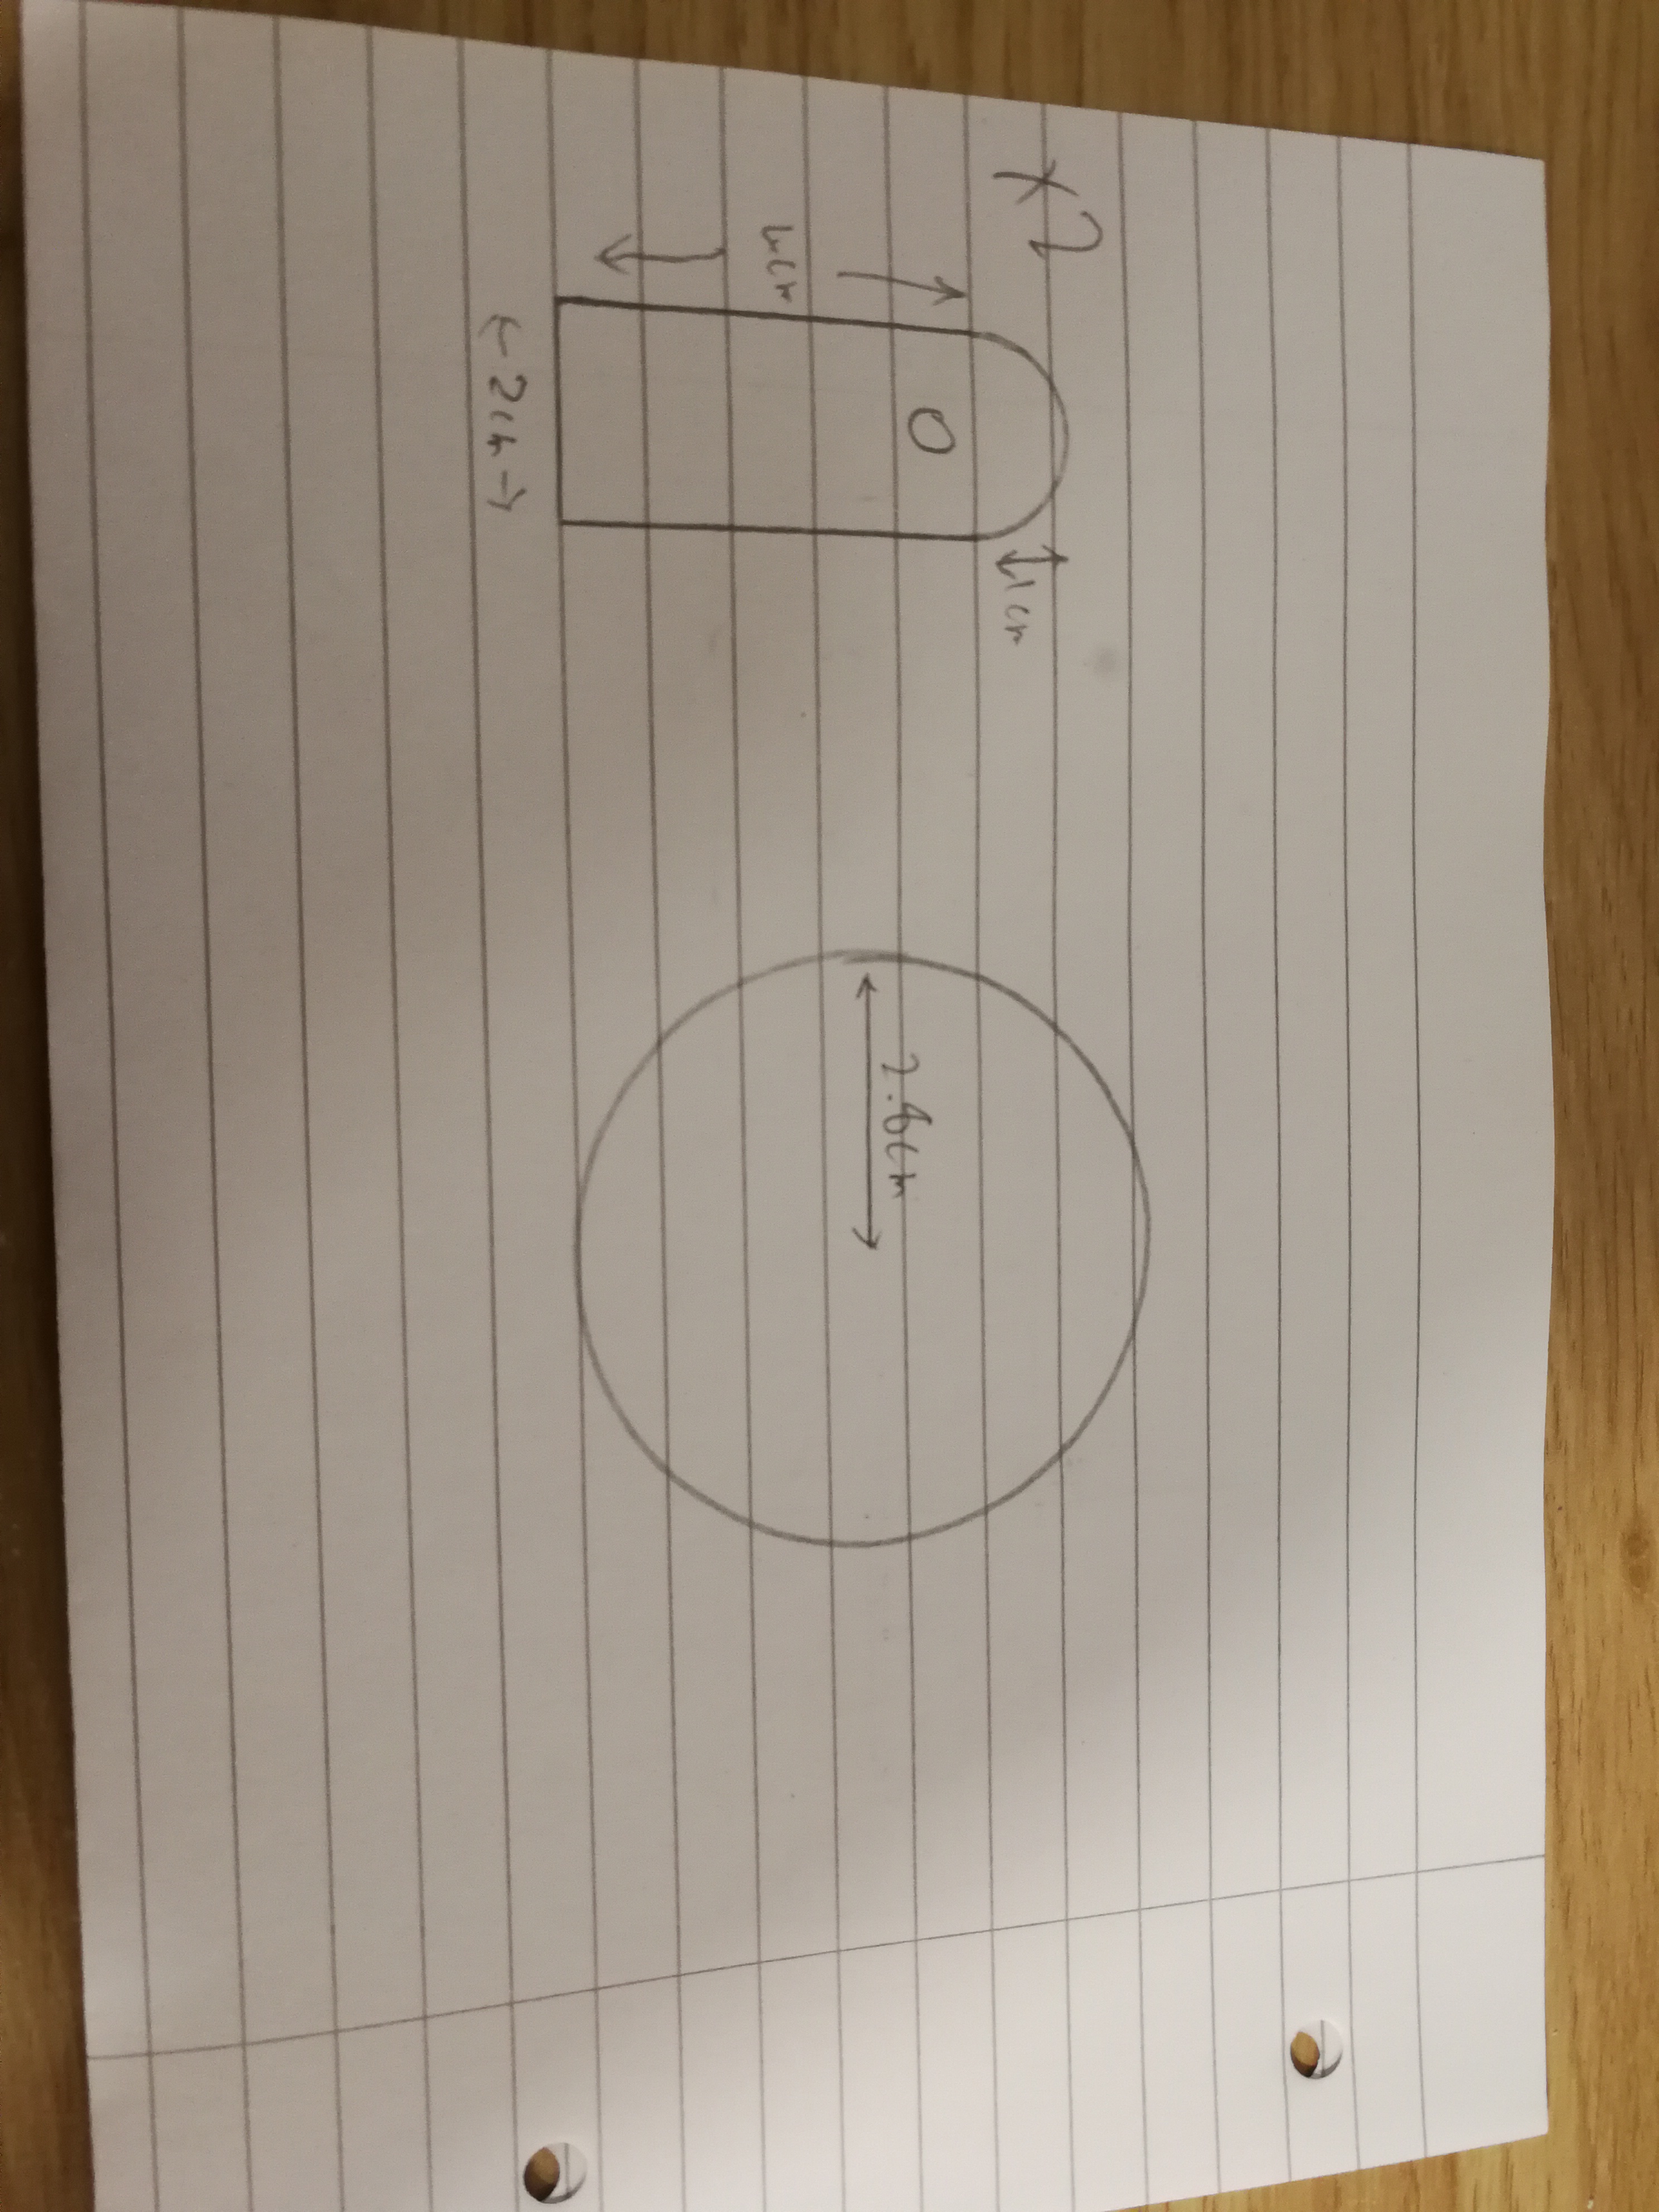 x2
4cm
1cm
2cm
2.6cm